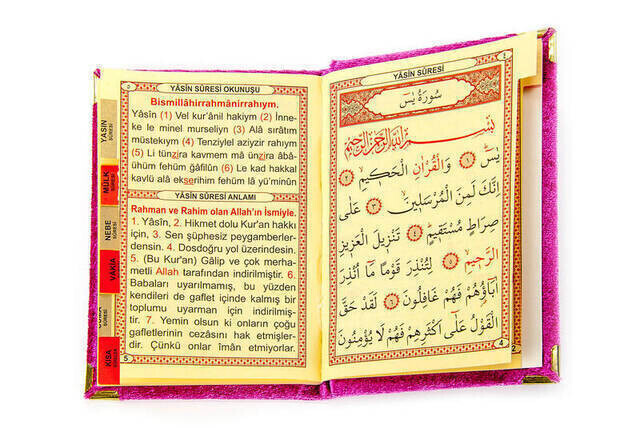 YÂSÎN SÛRESİ OKUNUŞU
Bismillâhirrahmânirrahıym.
Yâsîn (1) Vel kur'ânil hakiym (2) İnne-
ke le minel murseliyn (3) Alâ sırâtım
müstekıym (4) Tenziylel aziyzir rahıym
(5) Li tünzira kavmem mâ ünzira âbâ-
ühüm fehüm gâfilûn (6) Le kad hakkal
kavlü alâ ekserihim fehüm lâ yü'minûn
YÂSÎN SÛRESİ ANLAMI
Rahman ve Rahim olan Allah'ın İsmiyle.
1. Yâsîn, 2. Hikmet dolu Kur'an hakkı
için, 3. Sen şüphesiz peygamberler-
densin. 4. Dosdoğru yol üzerindesin.
5. (Bu Kur'an) Gâlip ve çok merha-
metli Allah tarafından indirilmiştir. 6.
Babaları uyarılmamış, bu yüzden
kendileri de gaflet içinde kalmış bir
toplumu uyarman için indirilmiş-
tir. 7. Yemin olsun ki onların çoğu
gafletlerinin cezasını hak etmişler-
dir. Çünkü onlar îmân etmiyorlar.
5
YASIN
SÛRESİ
MÜLK
SÛRESİ
NEBE
SÛRESİ
VAKIA
KISA
YÂSÎN SÛRESİ
سُورَةُ يٰسٓ
بِسْمِ اللّٰهِ الرَّحْمٰنِ الرَّحِيمِ
يٰسٓ ﴿١﴾ وَالْقُرْاٰنِ الْحَكِيمِ ﴿٢﴾
اِنَّكَ لَمِنَ الْمُرْسَلِينَ ﴿٣﴾ عَلٰى
صِرَاطٍ مُسْتَقِيمٍ ﴿٤﴾ تَنْزِيلَ الْعَزِيزِ
الرَّحِيمِ ﴿٥﴾ لِتُنْذِرَ قَوْمًا مَٓا اُنْذِرَ
اٰبَٓاؤُ۬هُمْ فَهُمْ غَافِلُونَ ﴿٦﴾ لَقَدْ حَقَّ
الْقَوْلُ عَلٰٓى اَكْثَرِهِمْ فَهُمْ لَا يُؤْمِنُونَ
4
2